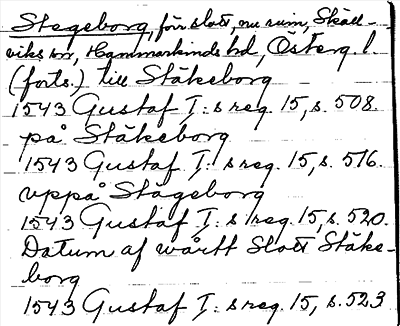 Stegeborg, förr slott, nu ruin, Skäll-
viks sn, Hammarkinds hd, Österg. l.
(forts.) till Stäkeborg
1543 Gustaf I:s reg. 15, s. 508.
på Stäkeborg
1543 Gustaf I:s reg. 15, s. 516.
uppå Stägeborg
1543 Gustaf I:s reg. 15, s. 520.
Datum af wårtt Slott Stäke-
borg
1543 Gustaf I:s reg. 15, s. 523